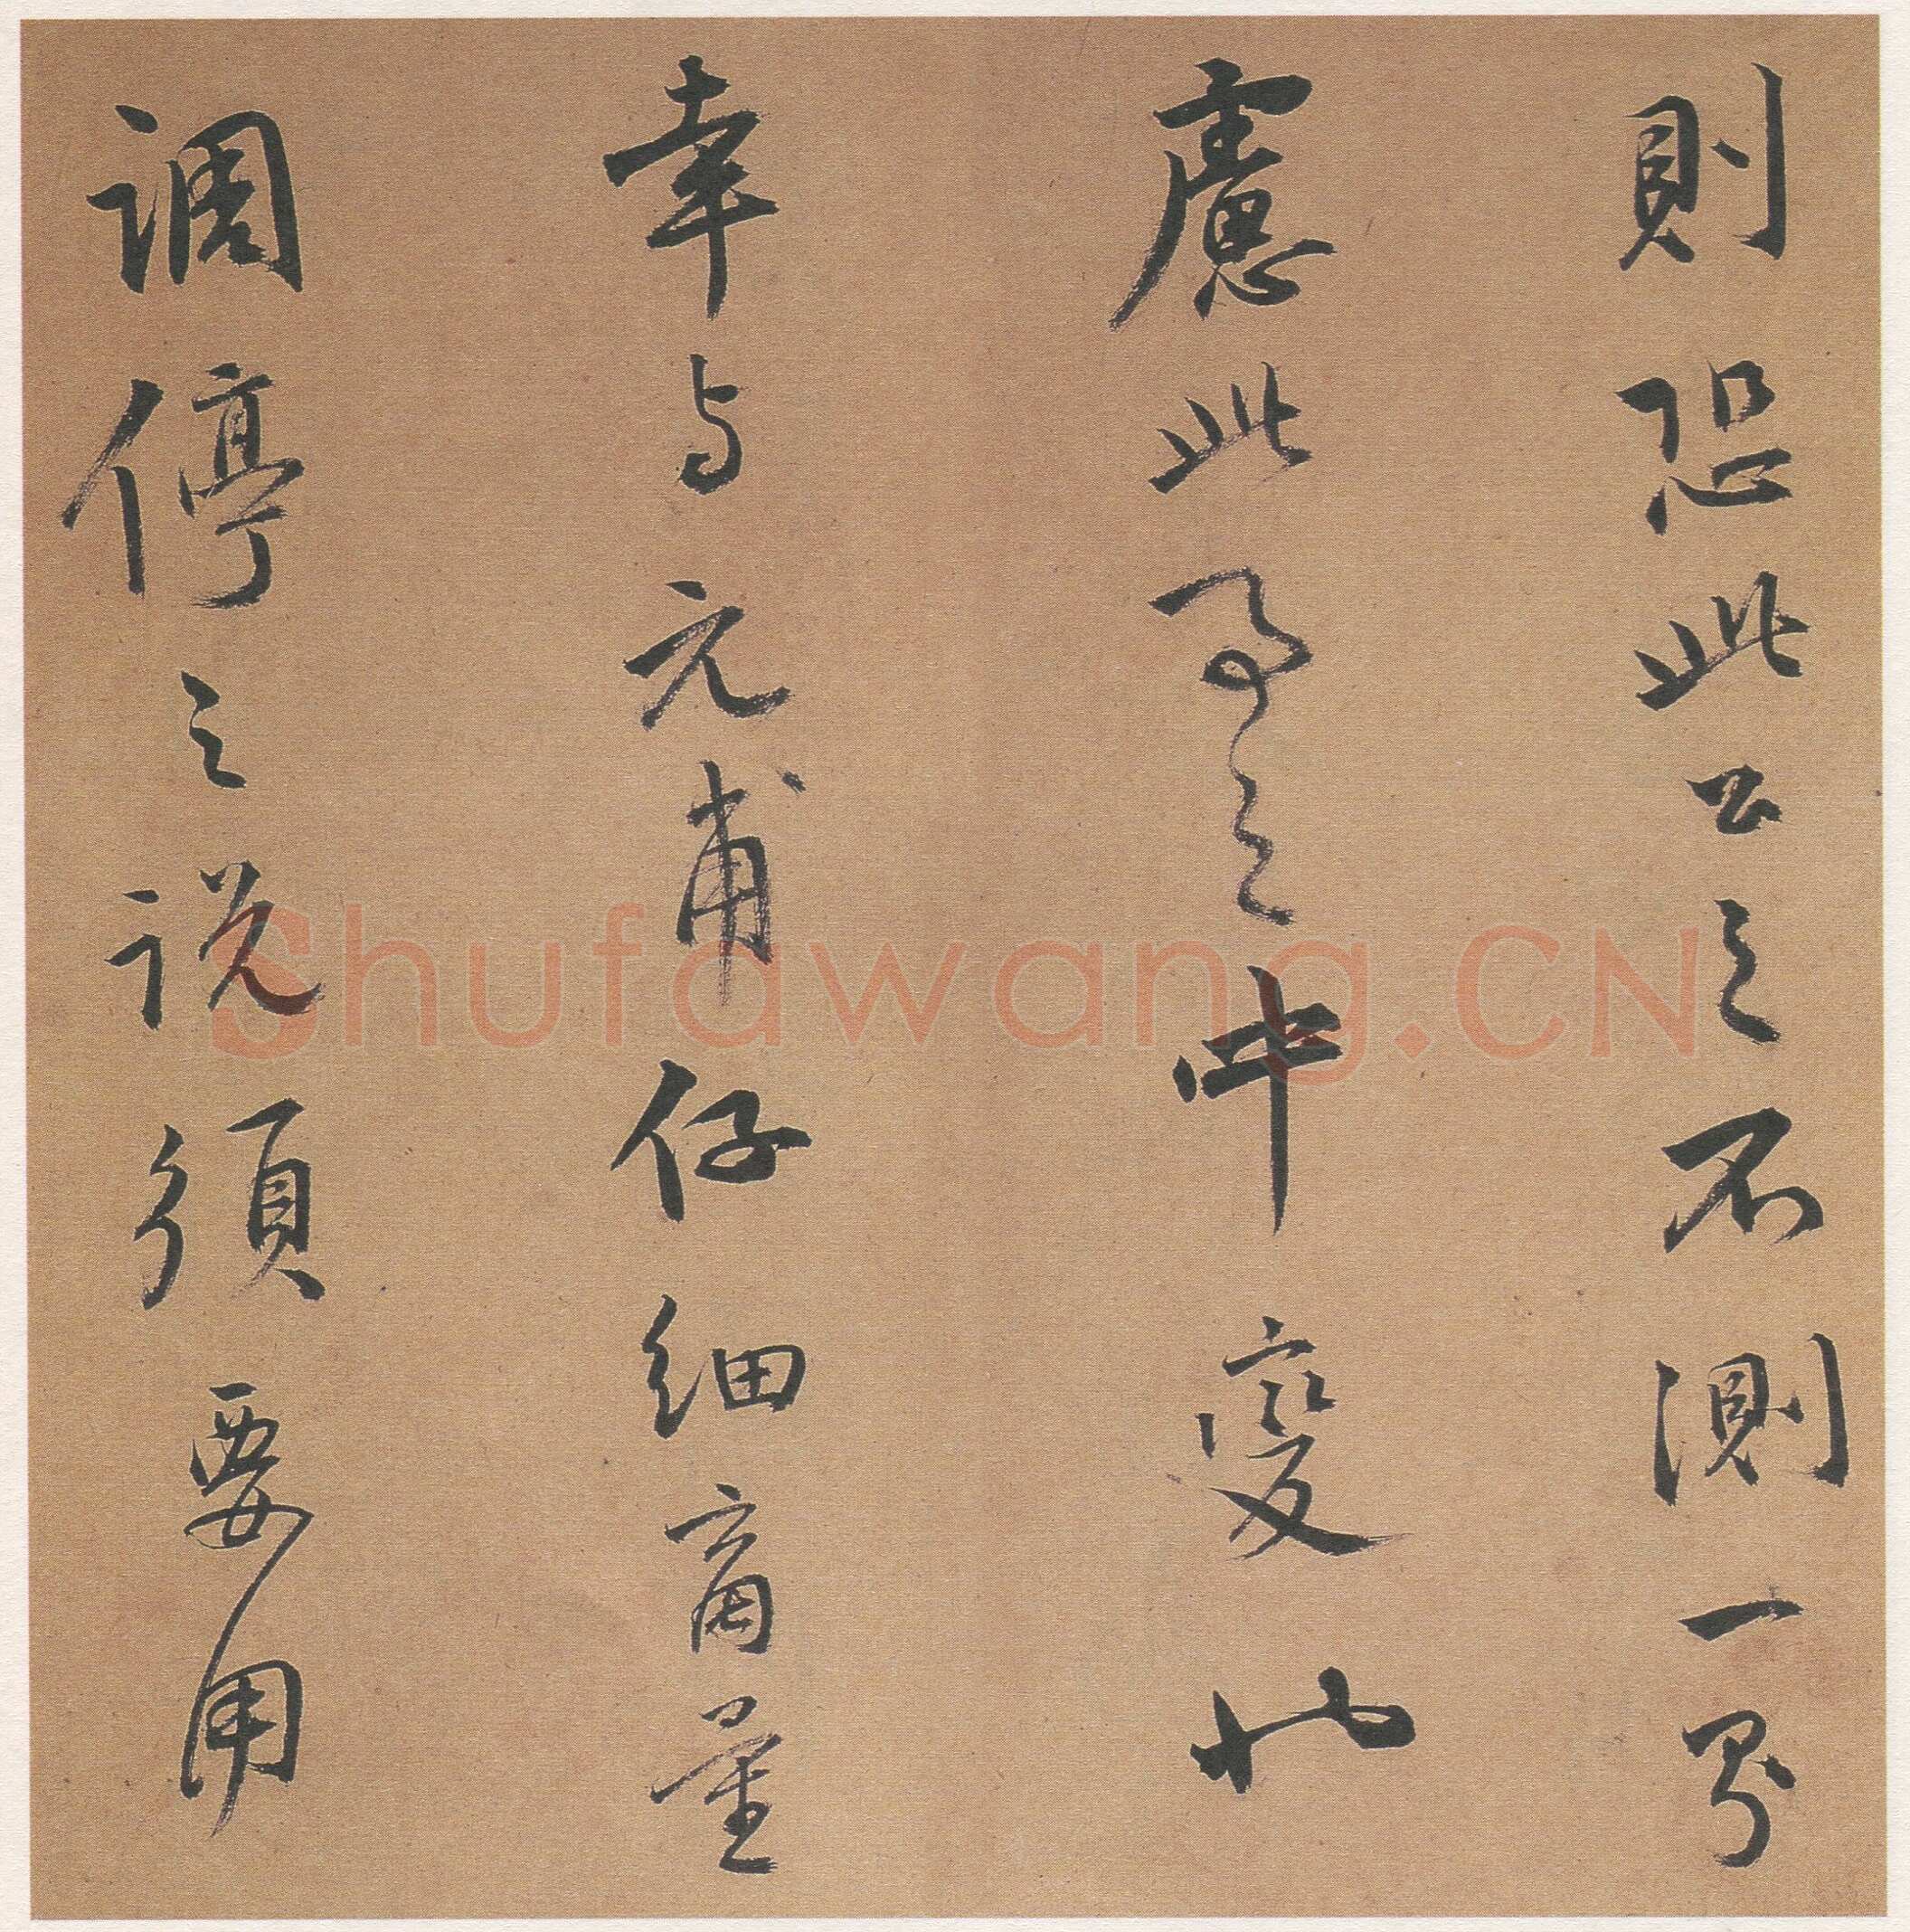 則恐此公之不測一界
慮此事之中變也
幸与元甫仔细商量
调停之说須要用
Shufawang.CN